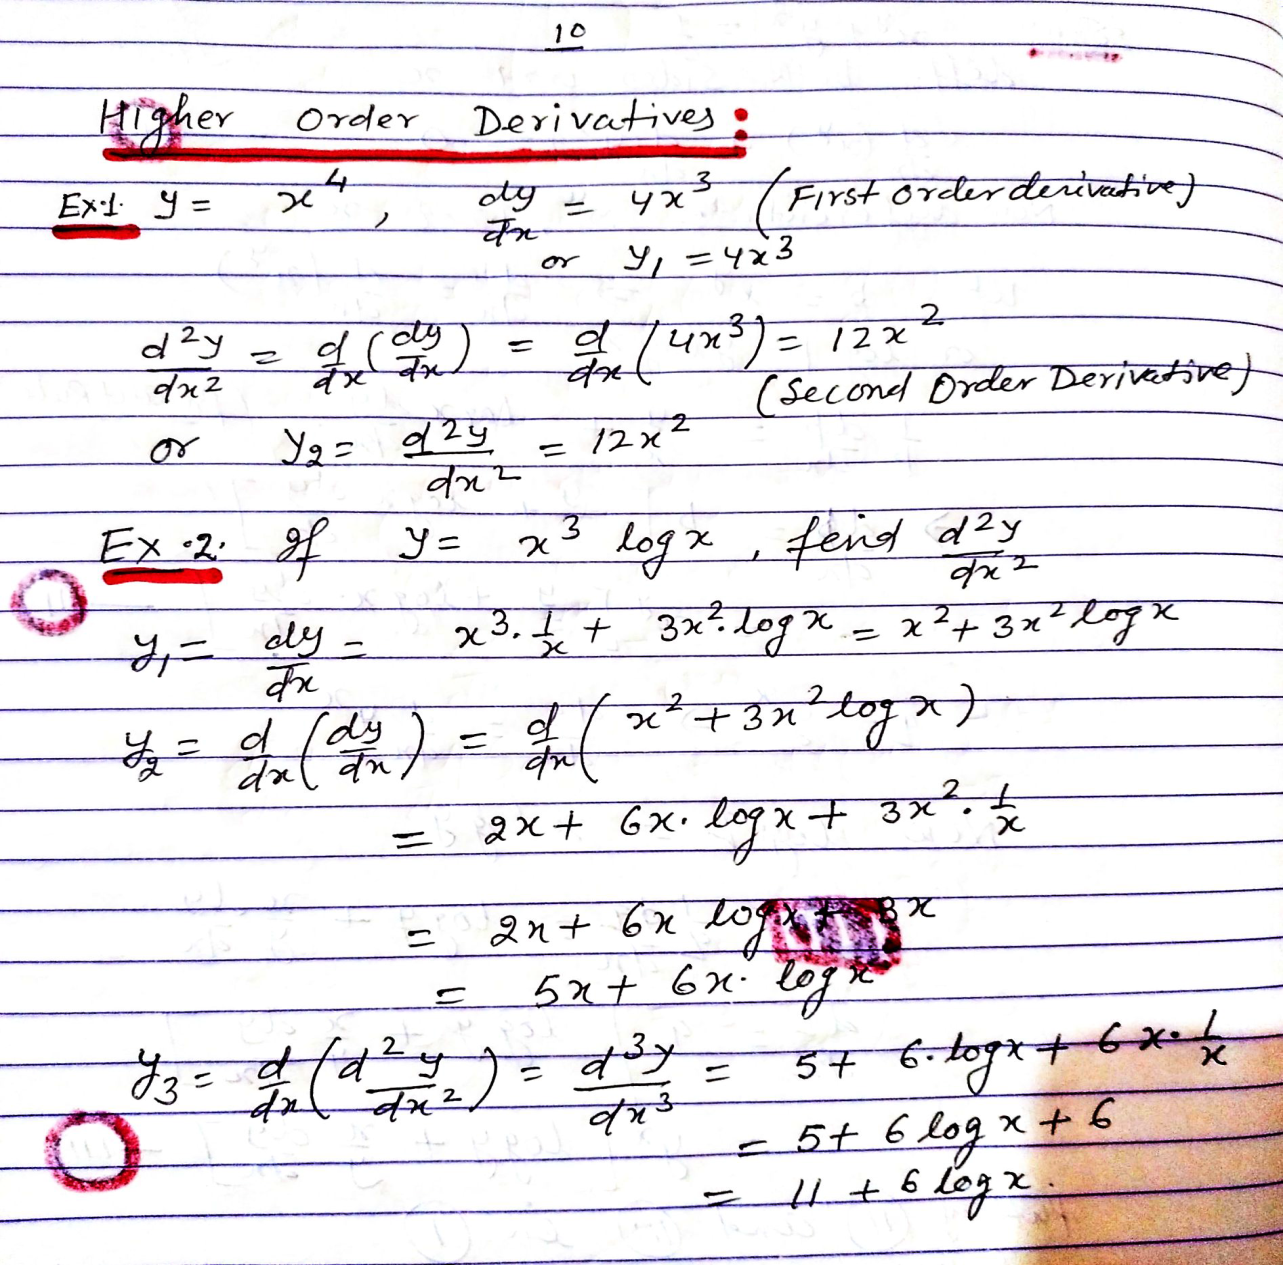 10
Higher Order Derivatives :
Ex.1. y = x⁴, dy/dx = 4x³ (First order derivative)
or y₁ = 4x³
d²y/dx² = d/dx (dy/dx) = d/dx (4x³) = 12x²
(Second Order Derivative)
or y₂ = d²y/dx² = 12x²
Ex.2. If y = x³ log x, find d²y/dx²
y₁ = dy/dx = x³. 1/x + 3x². log x = x² + 3x² log x
y₂ = d/dx (dy/dx) = d/dx (x² + 3x² log x)
= 2x + 6x. log x + 3x². 1/x
= 2x + 6x log x + 3x
= 5x + 6x. log x
y₃ = d/dx (d²y/dx²) = d³y/dx³ = 5 + 6. log x + 6x. 1/x
= 5 + 6 log x + 6
= 11 + 6 log x.